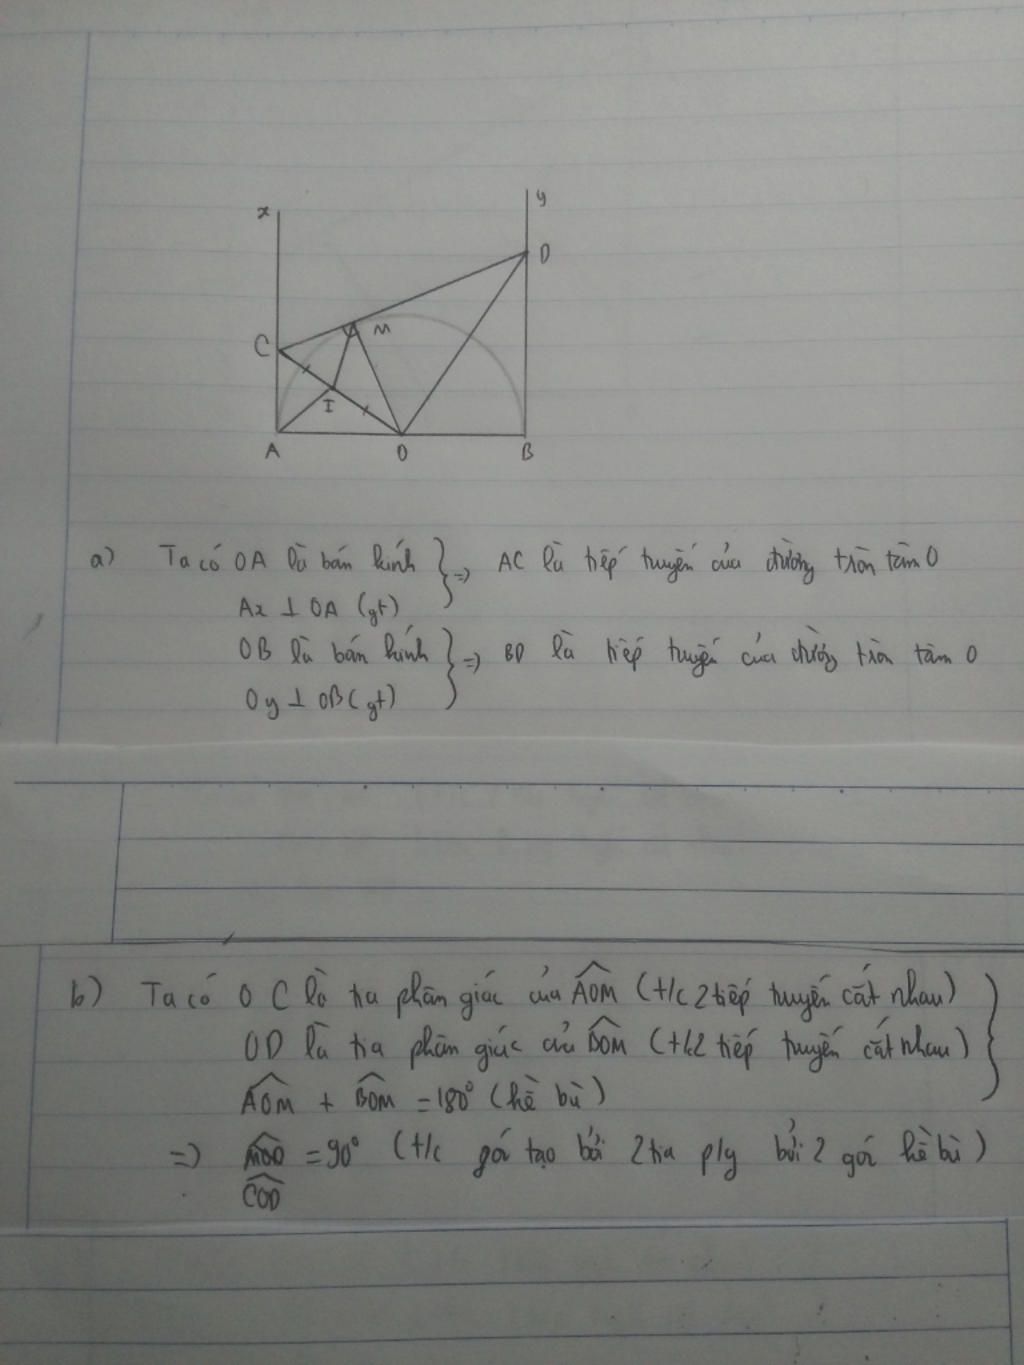 x
y
D
C
M
I
A
O
B
a) Ta có OA là bán kính } => AC là tiếp tuyến của đường tròn tâm O
Ax ⊥ OA (gt)
OB là bán kính } => BD là tiếp tuyến của đường tròn tâm O
Oy ⊥ OB (gt)
b) Ta có OC là tia phân giác của AOM (t/c 2 tiếp tuyến cắt nhau)
OD là tia phân giác củ BOM (t/c 2 tiếp tuyến cắt nhau)
AOM + BOM = 180° (kề bù)
=> = 90° (t/c góc tạo bởi 2 tia p/g bởi 2 góc kề bù)
COD